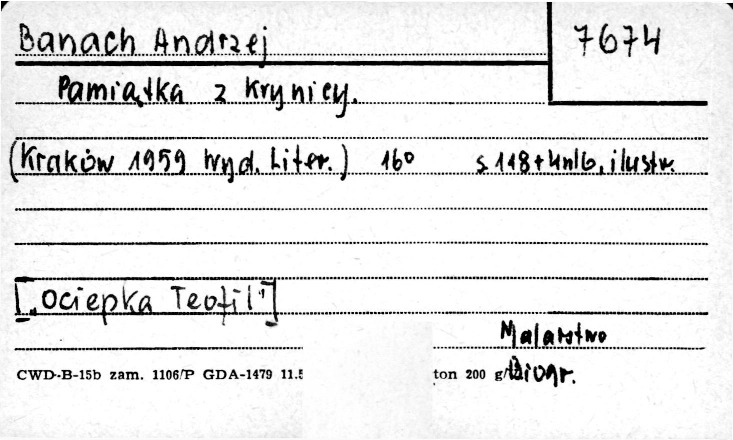 Banach Andrzej
7674
Pamiątka z Krynicy.
(Kraków 1959 Wyd. Liter.) 16° s. 118+4nlb, ilustr.
["Ociepka Teofil"]
Malarstwo
CWD-B-15b zam. 1106/P GDA-1479 11.5 ton 200 g/ Biogr.